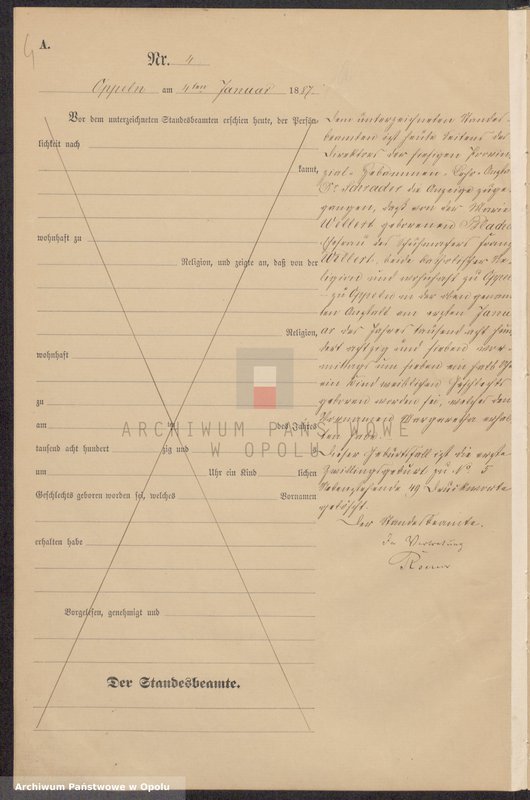 A.
Nr. 4
Oppeln am 4ten Januar 1887.
Vor dem unterzeichneten Standesbeamten erschien heute, der Persön-
lichkeit nach
kannt,
wohnhaft zu
Religion, und zeigte an, daß von der
Religion,
wohnhaft
zu
am ten des Jahres
tausend acht hundert zig und
um Uhr ein Kind lichen
Geschlechts geboren worden sei, welches Vornamen
erhalten habe
Vorgelesen, genehmigt und
Der Standesbeamte.
Dem unterzeichneten Standes-
beamten ist heute Seitens des
Direktors der hiesigen Provin-
zial-Hebammen-Lehr-Anstalt
Dr. Schrader die Anzeige zuge-
gangen, daß von der Marie
Willert geborenen
Ehefrau des Schuhmachers Franz
Willert, beide katholischer Re-
ligion und wohnhaft zu Oppeln
zu Oppeln in der oben genann-
ten Anstalt am ersten Janu-
ar des Jahres tausend acht hun-
dert achtzig und sieben vor-
mittags um sieben ein halb Uhr
ein Kind weiblichen Geschlechts
geboren worden sei, welches den
Vornamen Margaretha erhal-
ten habe.
Dieser Geburtsfall ist die erste
Zwillingsgeburt zu No 5
Nebenstehende 49 Druckworte
gelöscht.
Der Standesbeamte.
In Vertretung
ARCHIWUM PAŃSTWOWE
W OPOLU
Archiwum Państwowe w Opolu